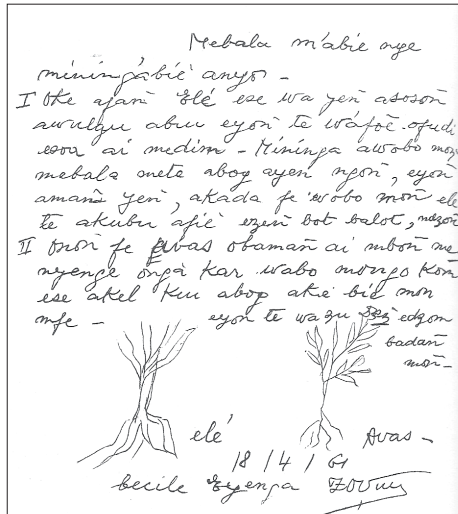 Mebala m'abié nye
míníngábié anyo -
I Oke ajañ Elé ese wa yeñ asosoñ
awulgu abui eyoñ te wáfoé ofudi
esoa ai medim - Míninga awobo moñ
mebala mete abog ayeñ ngoñ, eyoñ
amañ yeñ, akada fe wobo moñ elé
te akubu, afié ezeñ bot balot,
II onon fe Avas obamañ ai mboñ me
nyenge ôngá kar wabo mongo kom
ese akel kui abog akié bié mon
mfe - eyoñ te wazu edzom
badañ
moñ -
elé Avas -
18/4/61
becile Eyenga